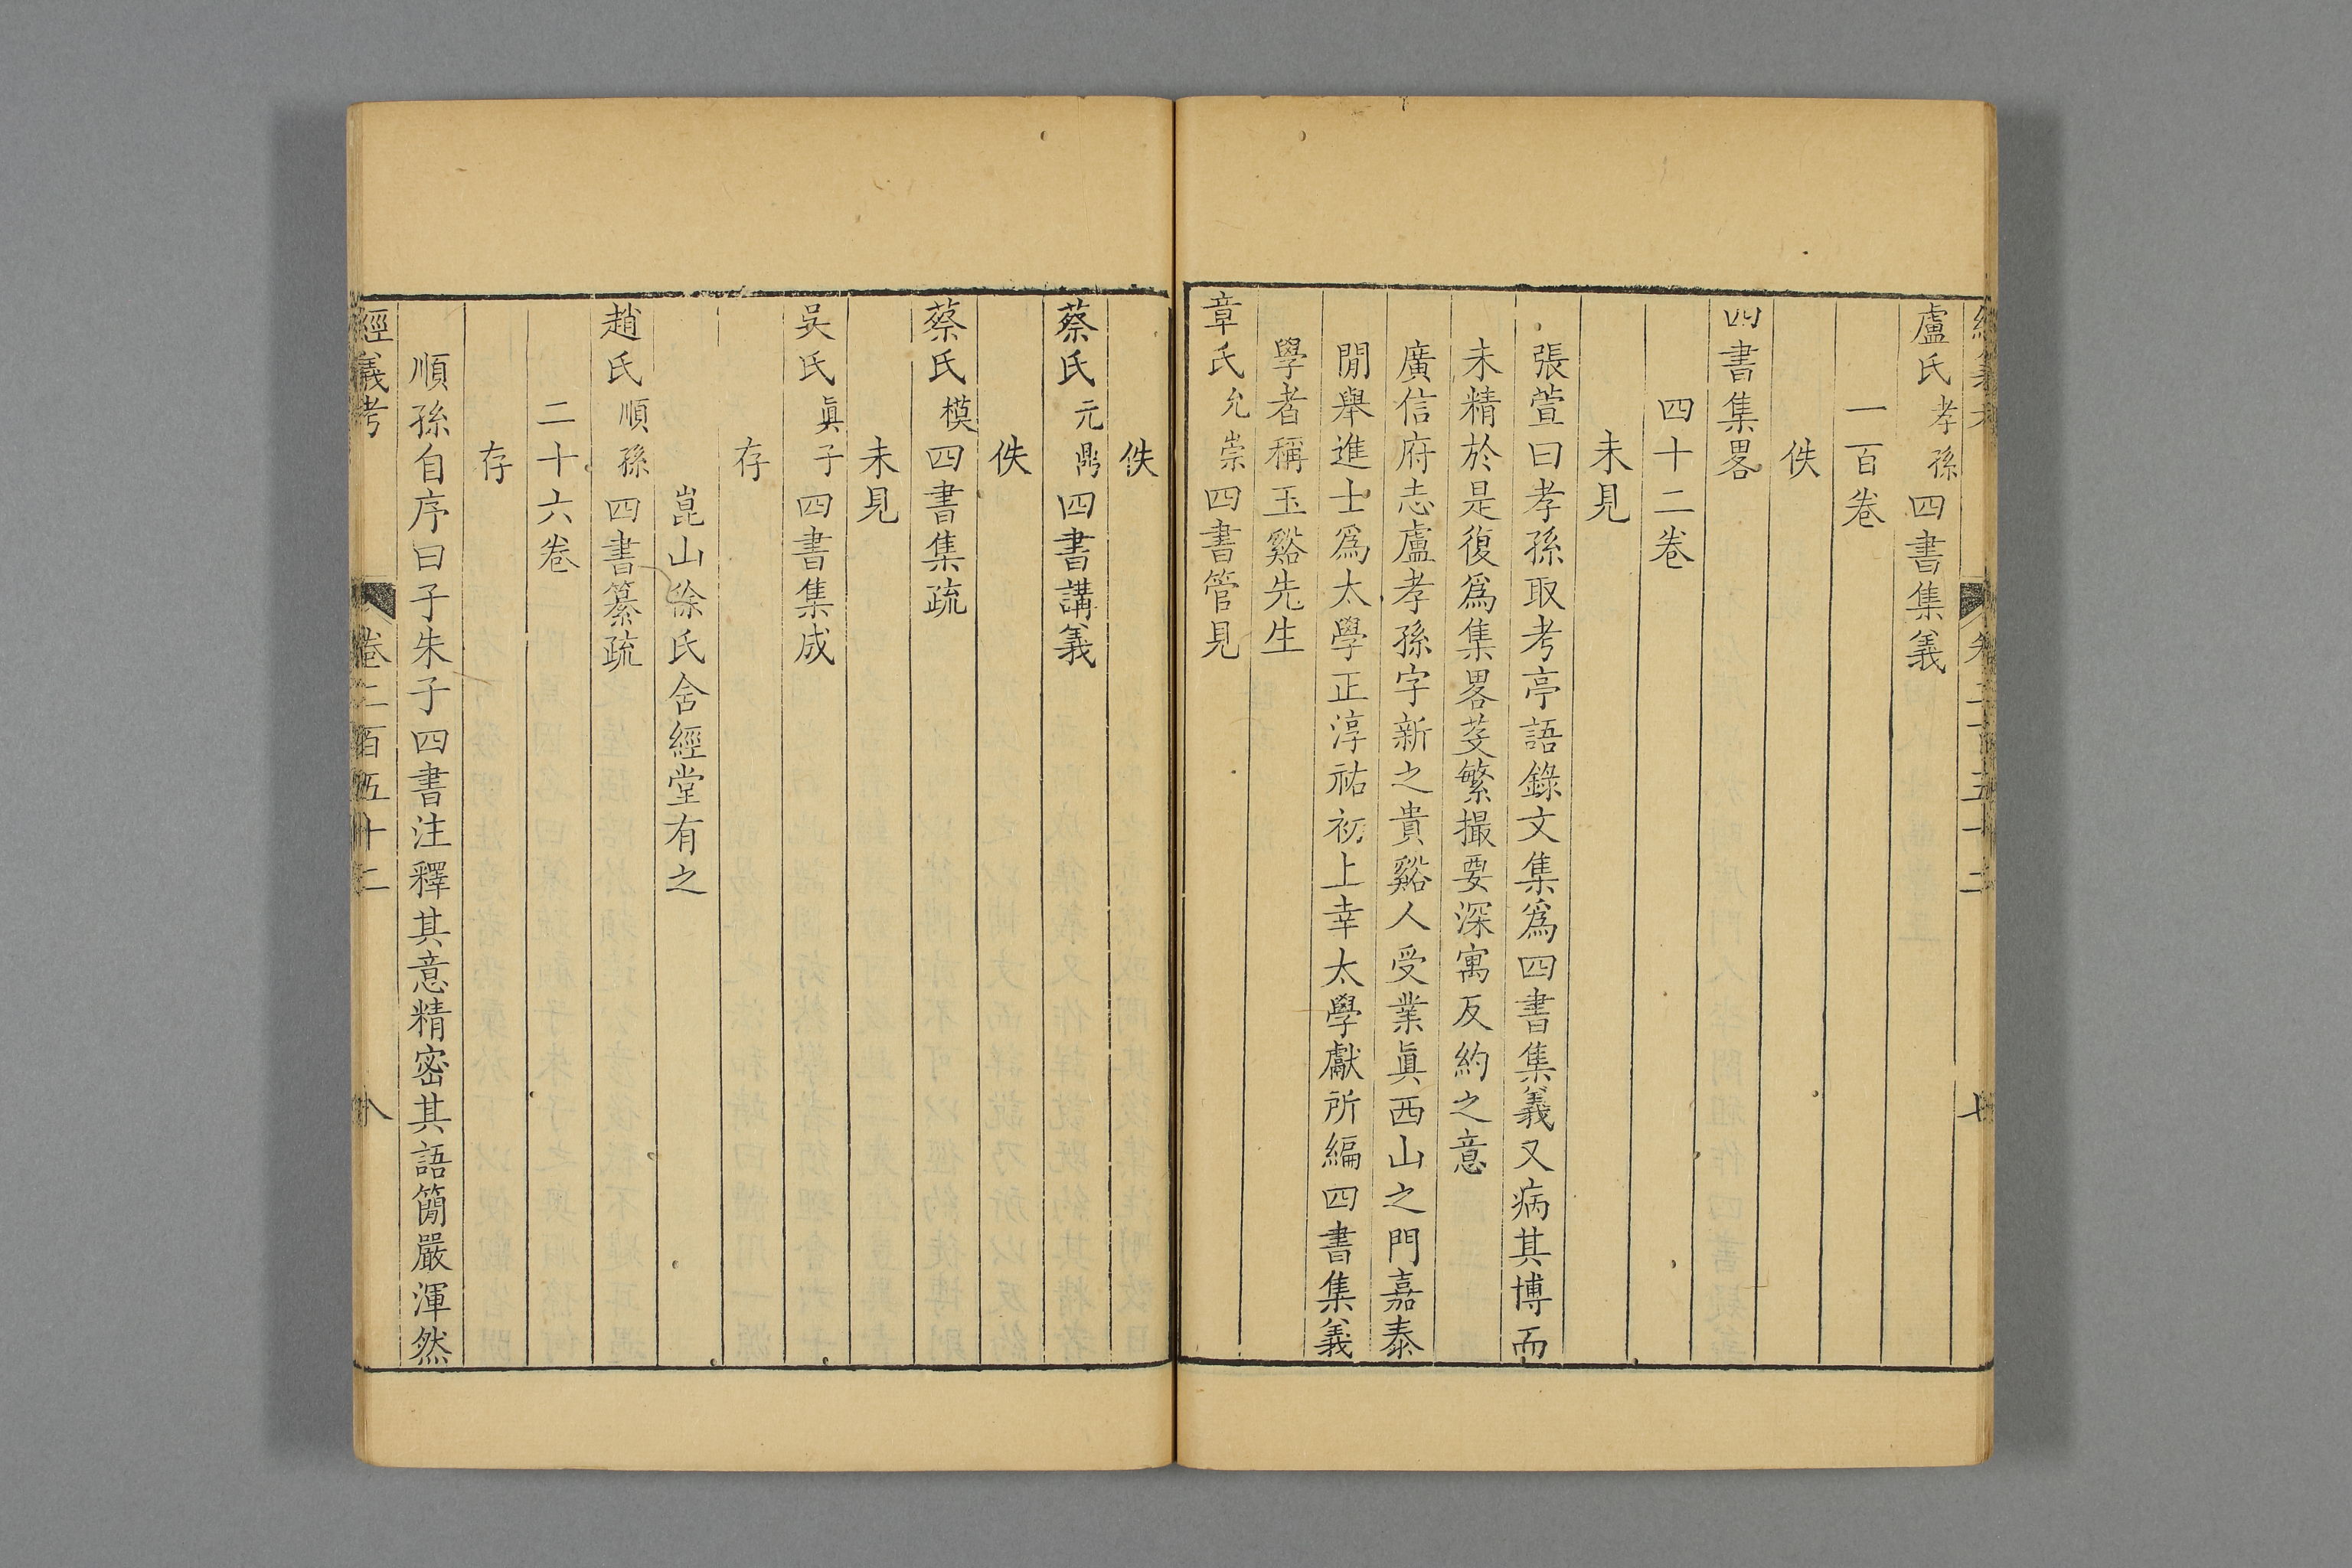 盧氏孝孫四書集義
一百卷
佚
四書集畧
四十二卷
未見
張萱曰孝孫取考亭語錄文集爲四書集義又病其博而
未精於是復爲集畧芟繁撮要深寓反約之意
廣信府志盧孝孫字新之貴谿人受業眞西山之門嘉泰
閒舉進士爲太學正淳祐初上幸太學獻所編四書集義
學者稱玉谿先生
章氏允崇四書管見
佚
蔡氏元鼎四書講義
佚
蔡氏模四書集疏
未見
吳氏眞子四書集成
存
崑山徐氏含經堂有之
趙氏順孫四書纂疏
二十六卷
存
順孫自序曰子朱子四書注釋其意精密其語簡嚴渾然
經義考 卷二百五十二 八